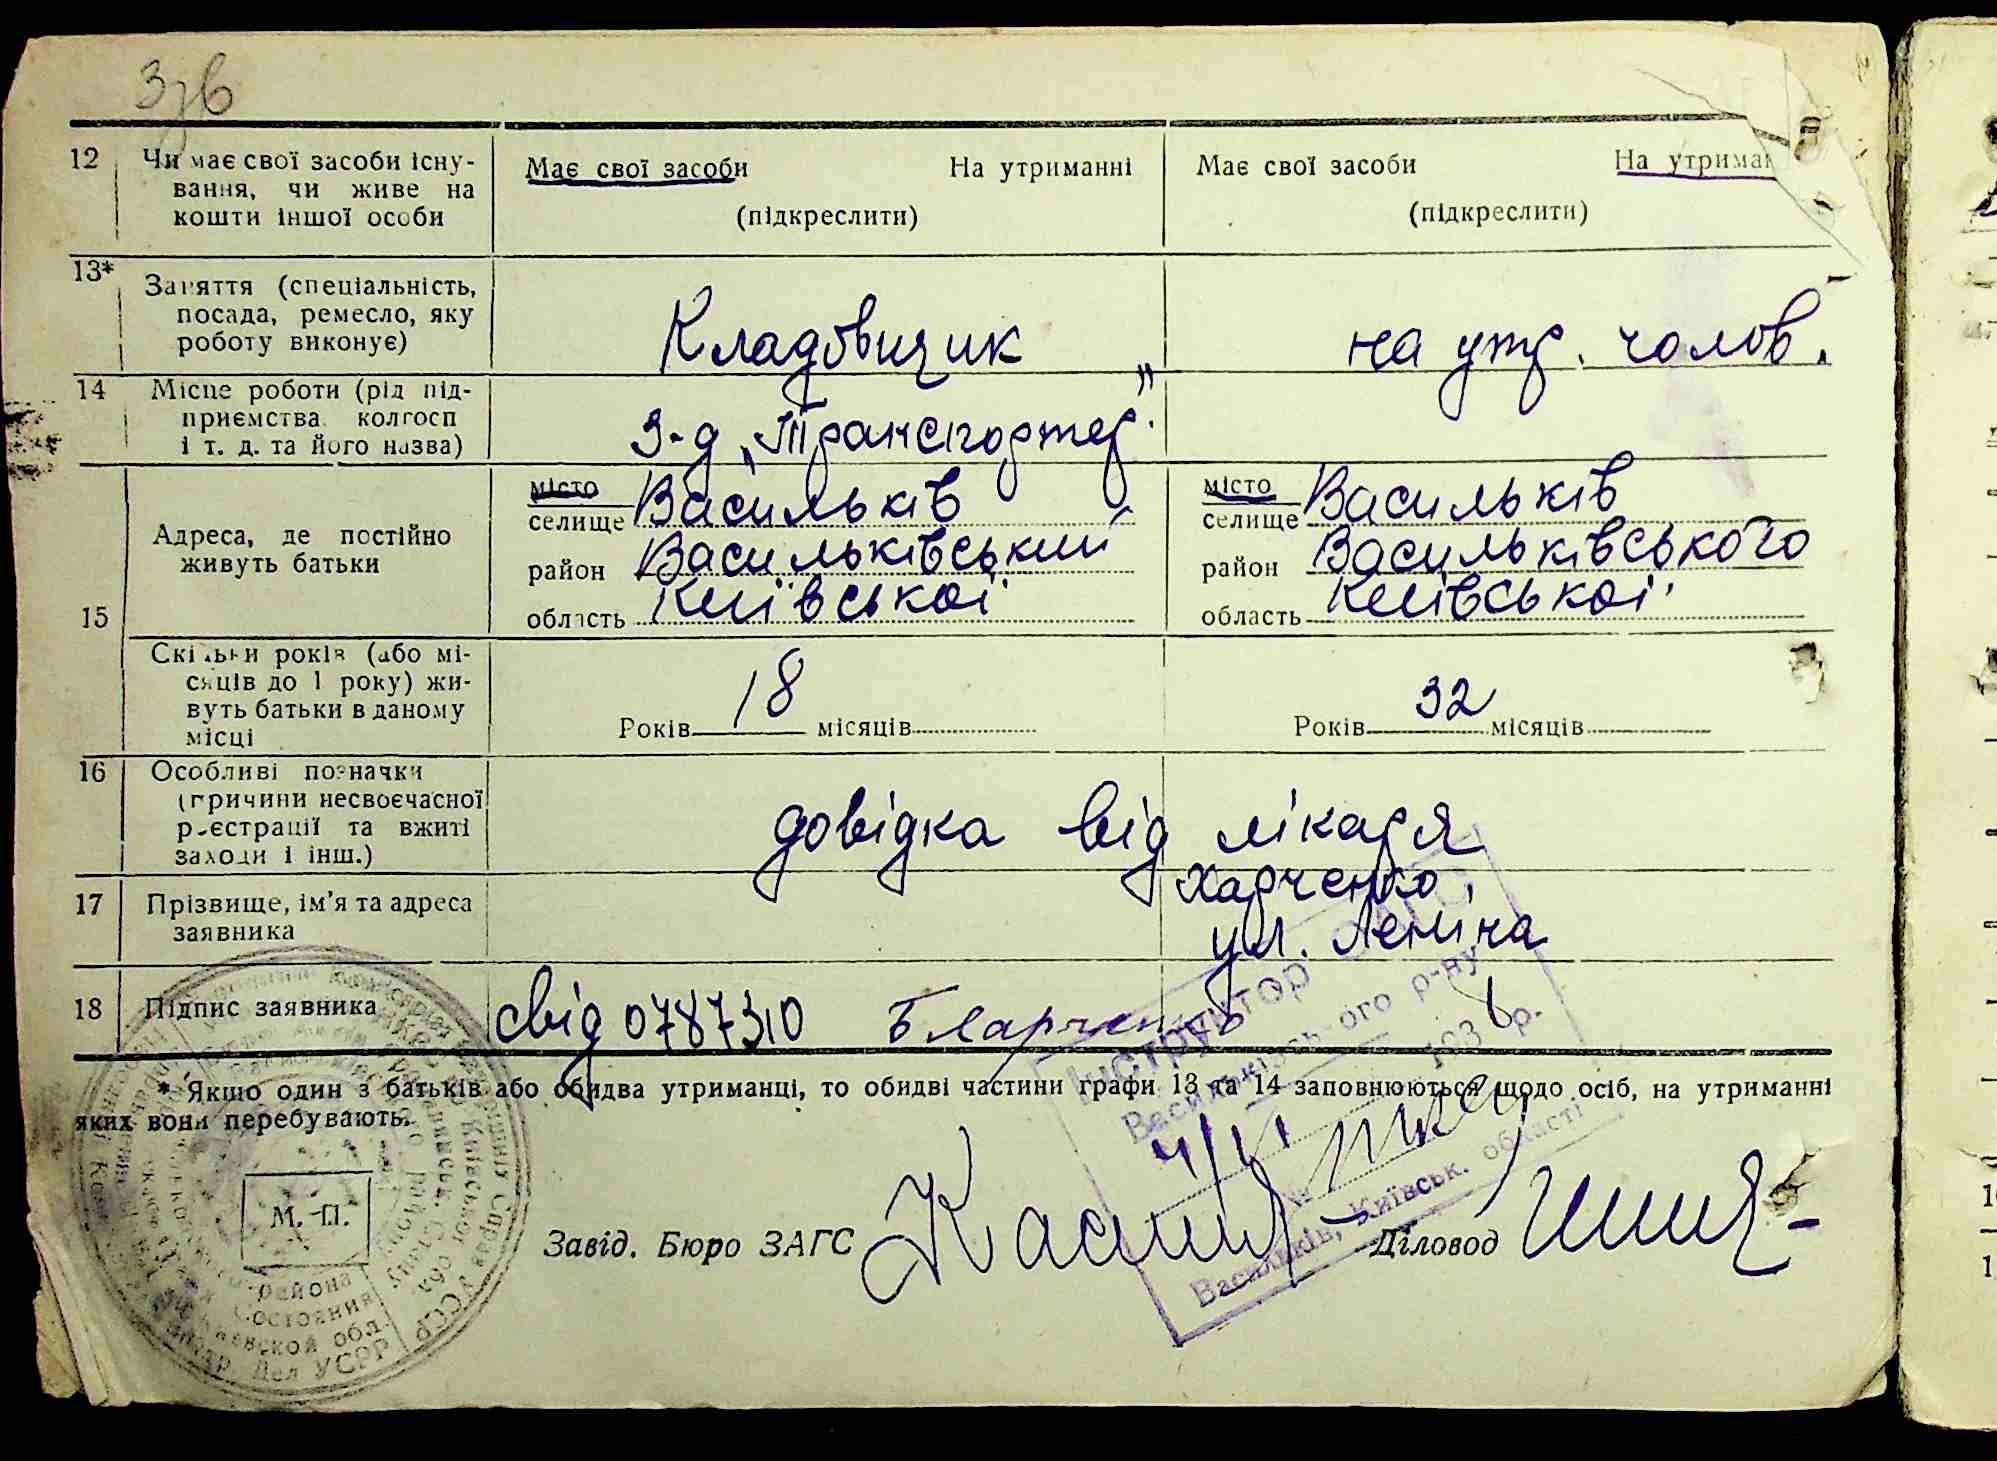 Ззв
12 Чи має свої засоби існу-
вання, чи живе на
кошти іншої особи
Має свої засоби На утриманні
(підкреслити)
Має свої засоби На утриман
(підкреслити)
13* Заняття (спеціальність,
посада, ремесло, яку
роботу виконує)
Кладовщик
на утр. чолов.
14 Місце роботи (рід під-
приємства, колгосп
і т. д. та його назва)
З-д „Транспортер"
15 Адреса, де постійно
живуть батьки
місто
селище Васильків
район Васильківський
область Київської
місто
селище Васильків
район Васильківського
область Київської
Скільки років (або мі-
сяців до 1 року) жи-
вуть батьки в даному
місці
Років 18 місяців
Років 32 місяців
16 Особливі позначки
(причини несвоєчасної
реєстрації та вжиті
заходи і інш.)
довідка від лікаря
17 Прізвище, ім'я та адреса
заявника
Харченко,
ул. Леніна
18 Підпис заявника
свід 0787310
* Якщо один з батьків або обидва утриманці, то обидві частини графи 13 та 14 заповнюються щодо осіб, на утриманні
яких вони перебувають.
Інструктор ЗАГС
Васильківського р-ну
4/VI 1938 р.
Васильків, Київськ. області
М. П.
Завід. Бюро ЗАГС
Діловод
района
Состояния
Киевской обл.
Дел УСРР